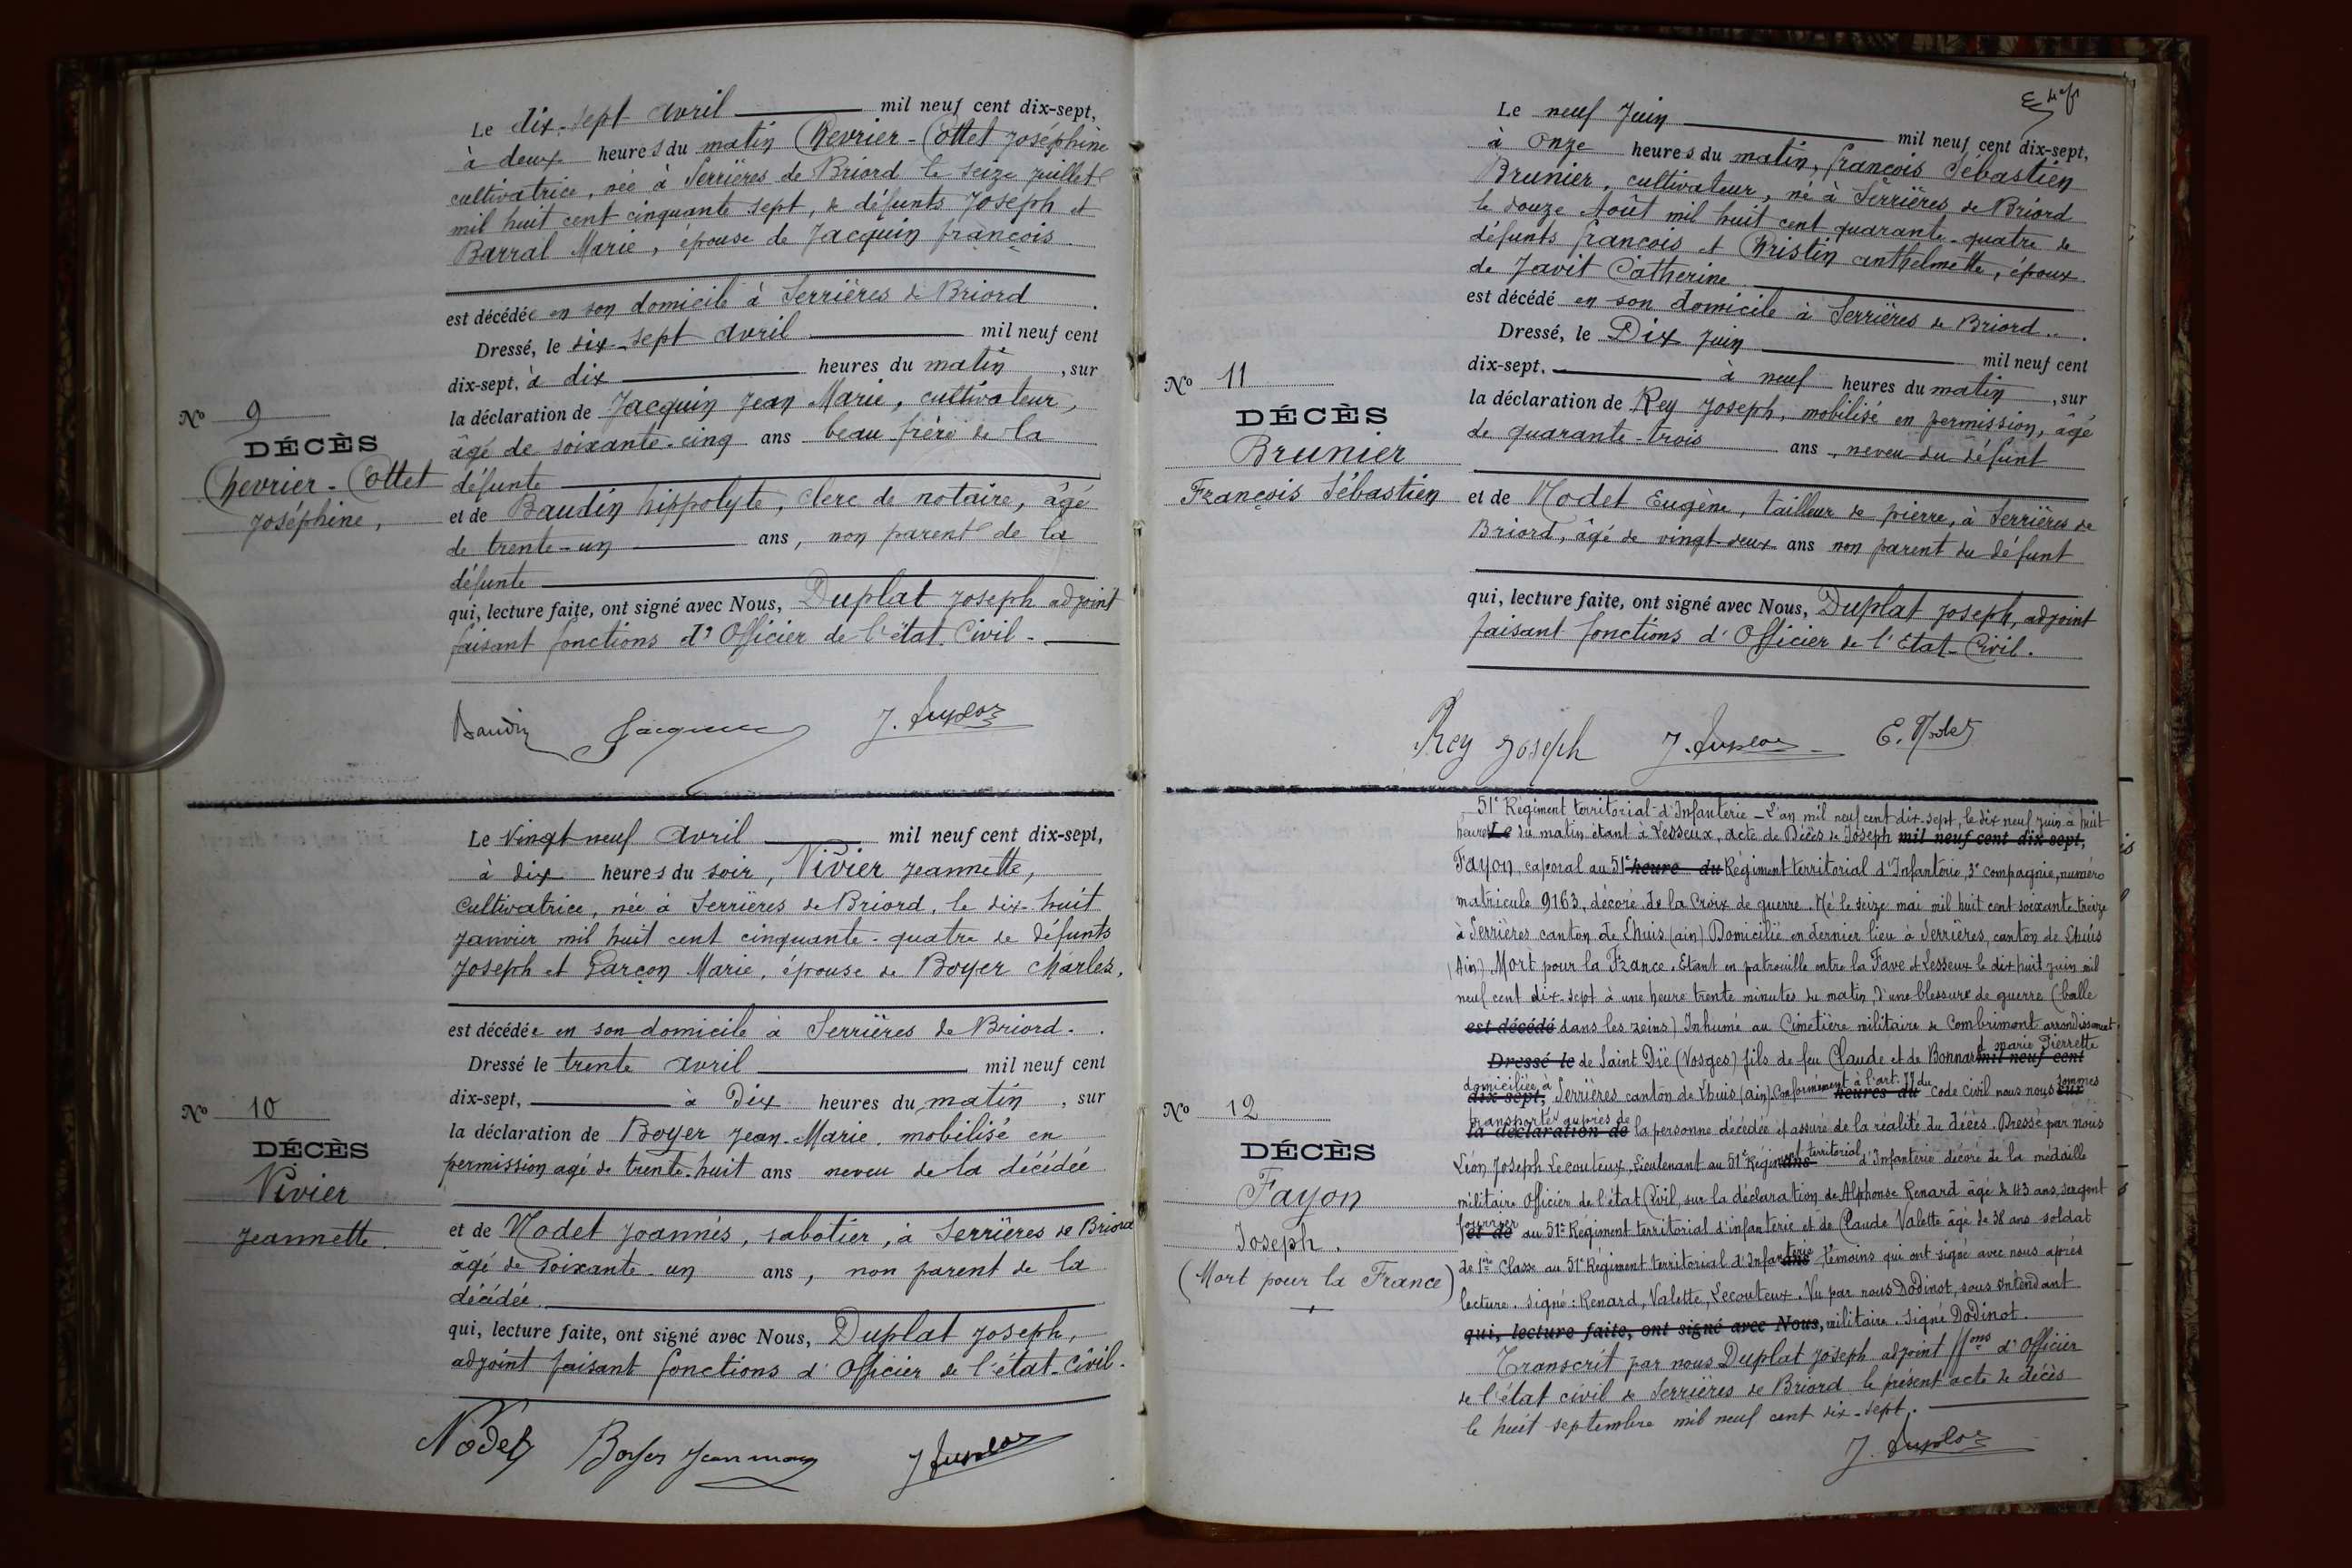 Le dix-sept avril mil neuf cent dix-sept,
à deux heures du matin Chevrier-Cottet Joséphine
cultivatrice, née à Serrières de Briord le seize juillet
mil huit cent cinquante sept, de défunts Joseph et
Barral Marie, épouse de Jacquin françois.
est décédée en son domicile à Serrières de Briord.
Dressé, le dix-sept avril mil neuf cent
dix-sept, à dix heures du matin, sur
la déclaration de Jacquin Jean Marie, cultivateur,
âgé de soixante-cinq ans beau-frère de la
défunte
et de Baudin hippolyte, clerc de notaire, âgé
de trente-un ans, non parent de la
défunte
qui, lecture faite, ont signé avec Nous, Duplat Joseph adjoint
faisant fonctions d'Officier de l'état Civil.
Nº 9
DÉCÈS
Chevrier-Cottet
Joséphine,
Baudin Jacquin J. Duplat
Le Vingt neuf avril mil neuf cent dix-sept,
à dix heures du soir, Vivier Jeannette,
cultivatrice, née à Serrières de Briord, le dix-huit
Janvier mil huit cent cinquante-quatre de défunts
Joseph et Garçon Marie, épouse de Boyer Charles,
est décédée en son domicile à Serrières de Briord.
Dressé le trente avril mil neuf cent
dix-sept, à Dix heures du matin, sur
la déclaration de Boyer Jean-Marie, mobilisé en
permission agé de trente-huit ans neveu de la décédée
et de Nodet Joannès, sabotier, à Serrières de Briord
âgé de soixante-un ans, non parent de la
décédée.
qui, lecture faite, ont signé avec Nous, Duplat Joseph,
adjoint faisant fonctions d'Officier de l'état-Civil.
Nº 10
DÉCÈS
Vivier
Jeannette.
Nodet Boyer Jean marie J Duplat
Le neuf Juin mil neuf cent dix-sept,
à Onze heures du matin, françois Sébastien
Brunier, cultivateur, né à Serrières de Briord
le douze Août mil huit cent quarante-quatre de
défunts françois et Christin anthelmette, époux
de Javit Catherine
est décédé en son domicile à Serrières de Briord.
Dressé, le Dix Juin mil neuf cent
dix-sept. à neuf heures du matin, sur
la déclaration de Rey Joseph, mobilisé en permission, âgé
de quarante-trois ans, neveu du défunt
et de Nodet Eugène, tailleur de pierre, à Serrières de
Briord, âgé de vingt-deux ans non parent du défunt
qui, lecture faite, ont signé avec Nous, Duplat Joseph, adjoint
faisant fonctions d'Officier de l'Etat-Civil.
Nº 11
DÉCÈS
Brunier
François Sébastien
Rey Joseph J. Duplat E. Nodet
51e Régiment territorial d'Infanterie - L'an mil neuf cent dix-sept, le dix neuf juin à huit
heures Le du matin étant à Lesseux, acte de Décès de Joseph mil neuf cent dix-sept,
Fayon, caporal au 51e heure du Régiment territorial d'Infanterie, 3e compagnie, numéro
matricule 9163, décoré de la Croix de guerre. Né le seize mai mil huit cent soixante-treize
à Serrières canton de Lhuis (ain) Domicilié en dernier lieu à Serrières, canton de Lhuis
(Ain). Mort pour la France. Etant en patrouille entre la Fave et Lesseux le dix huit juin mil
neuf cent dix-sept à une heure trente minutes du matin, d'une blessure de guerre (balle
est décédé dans les reins) Inhumé au Cimetière militaire de Combrimont arrondissement
Dressé le de Saint Dié (Vosges) fils de feu Claude et de Bonnard marie Pierrette mil neuf cent
domiciliée à dix-sept, Serrières canton de Lhuis (ain). Conformément à l'art. 77 du heures du Code Civil nous nous sommes
transporté auprès de la déclaration de la personne décédée et assuré de la réalité du décès. Dressé par nous
Léon Joseph Lecouteux, Lieutenant au 51e Régiment territorial ans d'Infanterie décoré de la médaille
militaire Officier de l'état Civil, sur la déclaration de Alphonse Renard âgé de 43 ans, sergent
fourrier et de au 51e Régiment territorial d'infanterie et de Claude Valette âgé de 38 ans soldat
de 1ère Classe au 51e Régiment territorial d'Infanterie ans, témoins qui ont signé avec nous après
lecture. signé: Renard, Valette, Lecouteux. Vu par nous Dodinot, sous intendant
qui, lecture faite, ont signé avec Nous, militaire. Signé Dodinot.
Transcrit par nous Duplat Joseph adjoint ffons d'Officier
de l'état civil de Serrières de Briord le présent acte de décès
le huit septembre mil neuf cent dix-sept.
Nº 12
DÉCÈS
Fayon
Joseph.
(Mort pour la France)
J. Duplat